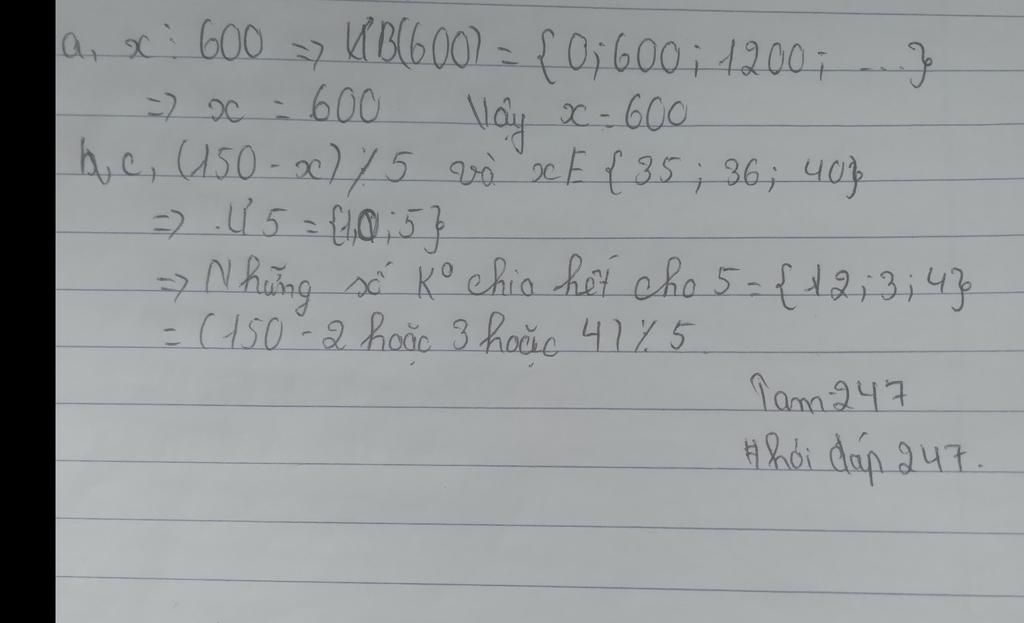 a, x ⋮ 600 => ƯB(600) = {0; 600; 1200; ...}
=> x = 600 Vậy x = 600
b, c, (150 - x) ⋮̸ 5 và x ∈ {35; 36; 40}
=> Ư 5 = {1; 5}
=> Những số K° chia hết cho 5 = {12; 3; 4}
= (150 - 2 hoặc 3 hoặc 4) ⋮̸ 5
Tam247
Hỏi đáp 247.